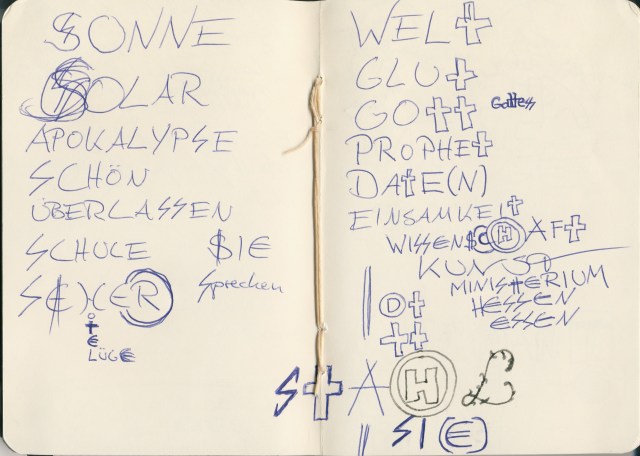 SONNE
SOLAR
APOKALYPSE
SCHÖN
ÜBERLASSEN
SCHULE $IE
Sprechen
LÜGE
WELT
GLUT
GOTT Gottes
PROPHET
DATE(N)
EINSAMKEIT
WISSEN$CHAFT
KUNST
MINISTERIUM
HESSEN
ESSEN
STAHL
SI(E)